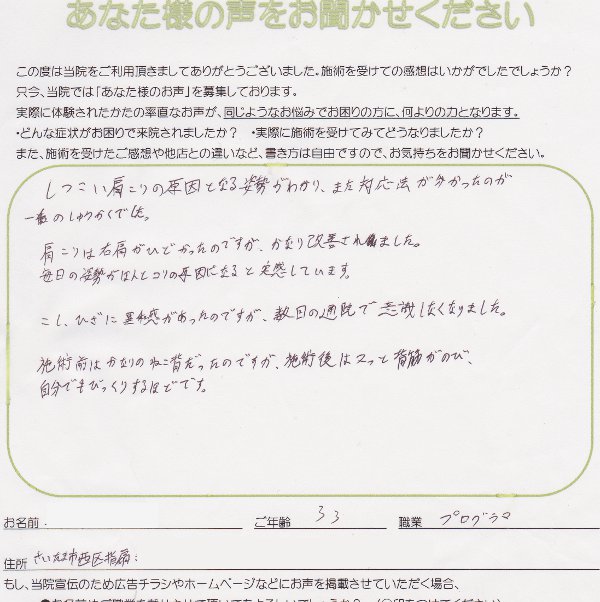 あなた様の声をお聞かせください
この度は当院をご利用頂きましてありがとうございました。施術を受けての感想はいかがでしたでしょうか？
只今、当院では「あなた様のお声」を募集しております。
実際に体験されたかたの率直なお声が、同じようなお悩みでお困りの方に、何よりの力となります。
・どんな症状がお困りで来院されましたか？　・実際に施術を受けてみてどうなりましたか？
また、施術を受けたご感想や他店との違いなど、書き方は自由ですので、お気持ちをお聞かせください。
しつこい肩こりの原因となる姿勢がわかり、また対応法が分かったのが
一番のしゅうかくでした。
肩こりは右肩がひどかったのですが、かなり改善されました。
毎日の姿勢がほんとコリの原因になると実感しています。
こし、ひざに違和感があったのですが、数日の通院で意識しなくなりました。
施術前はかなりのねこ背だったのですが、施術後はスッと背筋がのび、
自分でもびっくりするほどです。
お名前
ご年齢 33 職業 プログラマ
住所 さいたま市西区指扇
もし、当院宣伝のため広告チラシやホームページなどにお声を掲載させていただく場合、